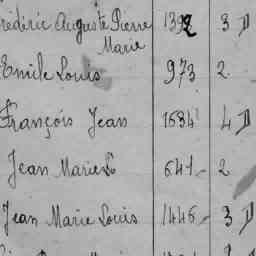 Frédéric Auguste Pierre 1392 3 D
Marie
Emile Louis 973 2
François Jean 1634 4 D
Jean Marie L. 641 2
Jean Marie Louis 1446 3 D